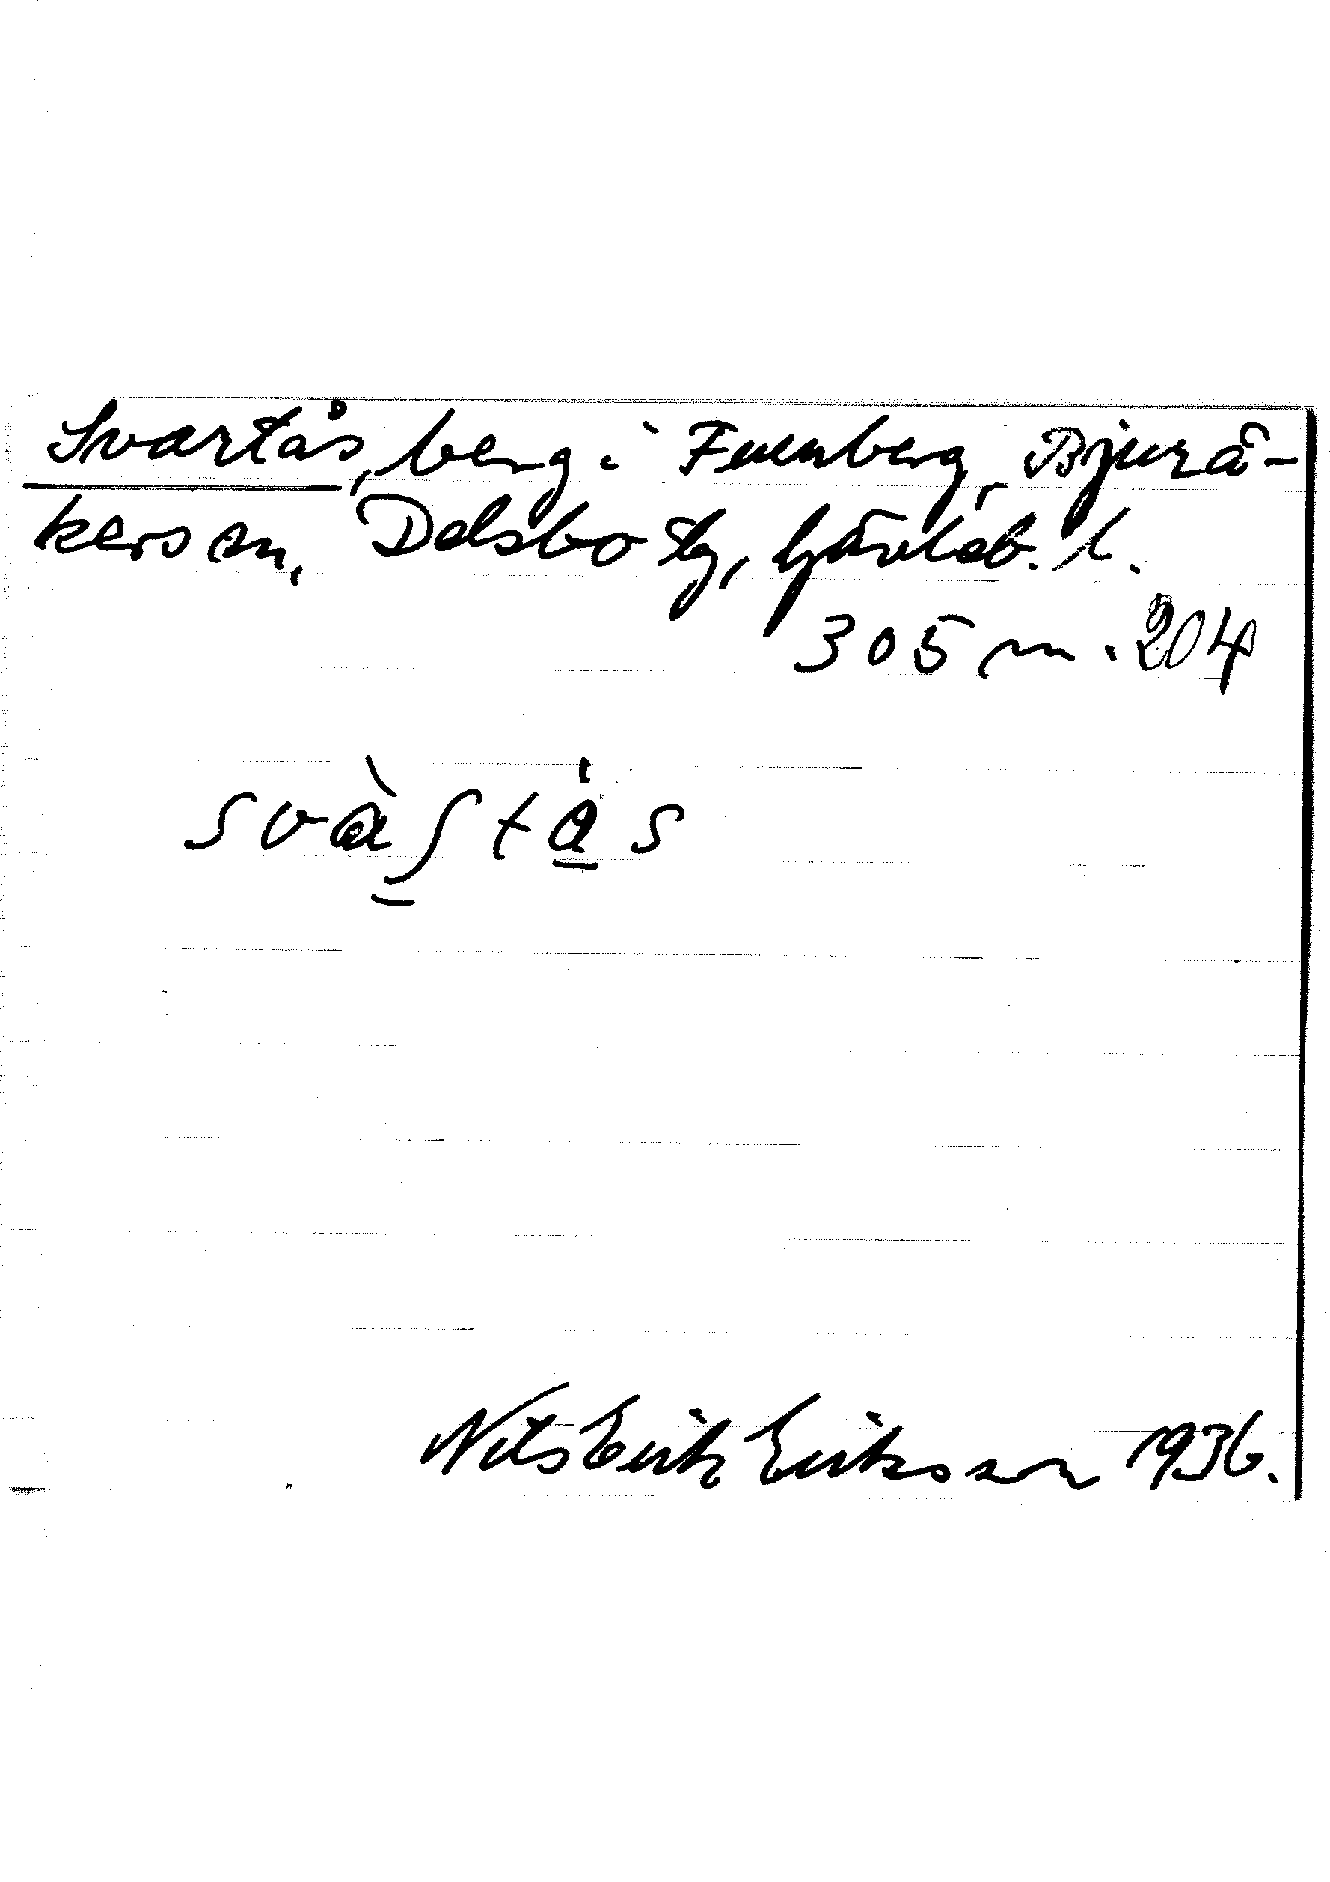 Svartås, berg i Furuberg, Bjurå-
kers sn, Delsbo tg, Gävleb. l.
305 m. 204
Nils Erik Eriksson 1936.